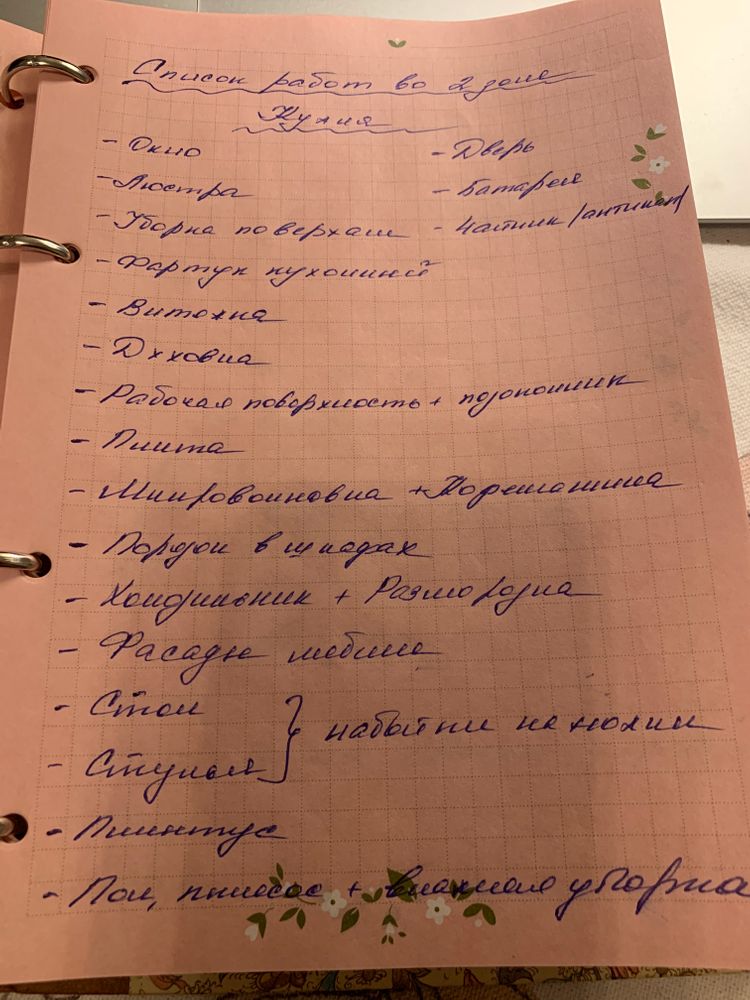 Список работ во 2 доме
Кухня
- Окно
- Люстра
- Уборка поверхам
- Фартук кухонный
- Витожка
- Духовка
- Рабочая поверхность + подоконник
- Плита
- Микроволновка + Кофемашина
- Порядок в шкафах
- Холодильник + Разморозка
- Фасады мебели
- Стол
- Стулья } набойки на ножки
- Плинтус
- Пол, пылесос + влажная уборка
- Дверь
- Батарея
- Чайник /антикап/